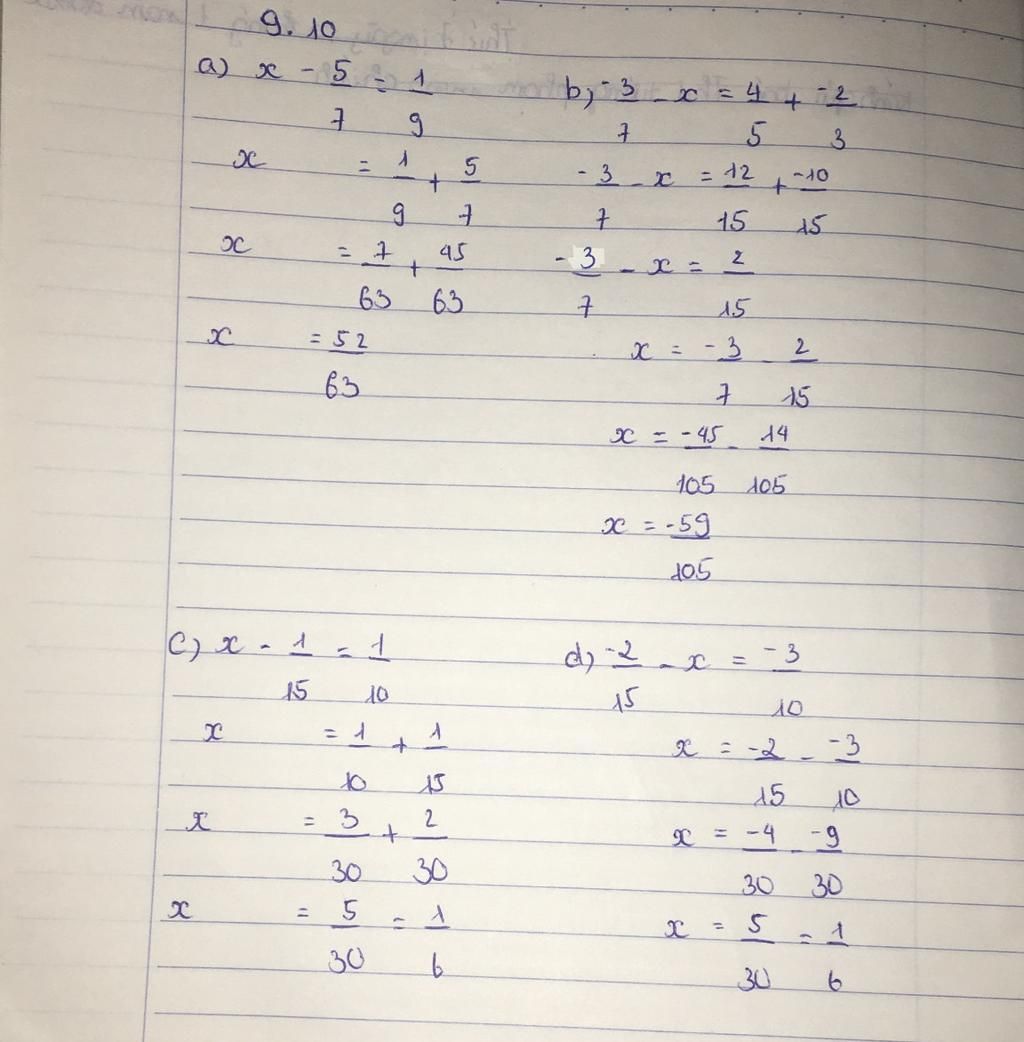 9.10
a) x - 5/7 = 1/9
x = 1/9 + 5/7
x = 7/63 + 45/63
x = 52/63
b) -3/7 - x = 4/5 + -2/3
-3/7 - x = 12/15 + -10/15
-3/7 - x = 2/15
x = -3/7 - 2/15
x = -45/105 - 14/105
x = -59/105
c) x - 1/15 = 1/10
x = 1/10 + 1/15
x = 3/30 + 2/30
x = 5/30 = 1/6
d) -2/15 - x = -3/10
x = -2/15 - -3/10
x = -4/30 - -9/30
x = 5/30 = 1/6